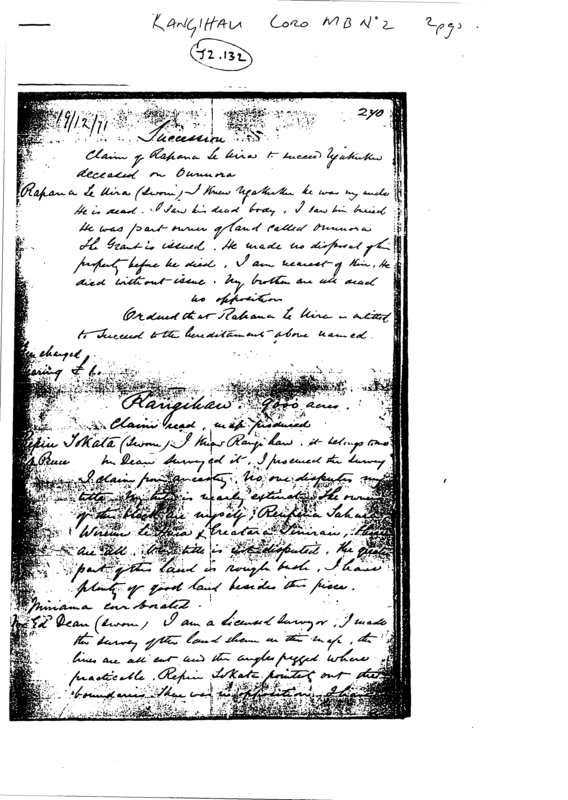 RANGIHAU CORO MB No 2 2pgs.
J2.132
19/12/71
240
Succession
Claim of Rapana Te Wira to succeed Ngakuku
deceased on Ounuora
Rapana Te Wira (Sworn) I knew Ngakuku he was my uncle
He is dead. I saw his dead body. I saw him buried
He was part owner of land called Ounuora
The Grant is issued. He made no disposal of his
property before he died. I am nearest of Kin. He
died without issue. My brothers are all dead
No opposition
Ordered that Rapana Te Wira is entitled
to succeed to the hereditament above named.
charged
£1.
Rangihau. 9000 acres.
Claim read, map produced
Tokata (Sworn) I know Rangihau. it belongs to me
Mr Dean surveyed it. I procured the survey
I claim from ancestry. No one disputes my
title. My is nearly extinct. The owners
of this block are myself,
are all. title is not disputed. The great
part of the land is rough bush. I have
plenty of good land besides this piece.
corroborated.
Ed Dean (Sworn) I am a licensed Surveyor. I made
the survey of the land shown on the map. the
lines are all cut and the angles pegged where
practicable. Tokata pointed out the
boundaries. There was no opposition. I